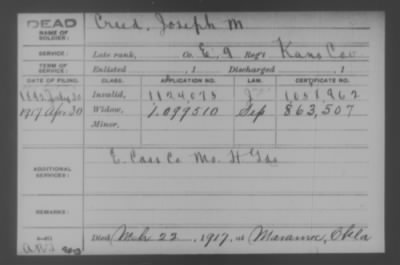 DEAD
NAME OF SOLDIER:
Creed, Joseph M
SERVICE:
Late rank, Co. E, 9 Reg't Kans Cav
TERM OF SERVICE:
Enlisted , 1 Discharged , 1
DATE OF FILING. CLASS. APPLICATION NO. LAW. CERTIFICATE NO.
July 30 Invalid, 1124073
1917 Apr. 30 Widow, 1.099510 Sep 863,507
Minor,
ADDITIONAL SERVICES:
E. Cass Co Mo. H Gds
REMARKS:
Died Mch 22, 1917, at Maramec, Okla